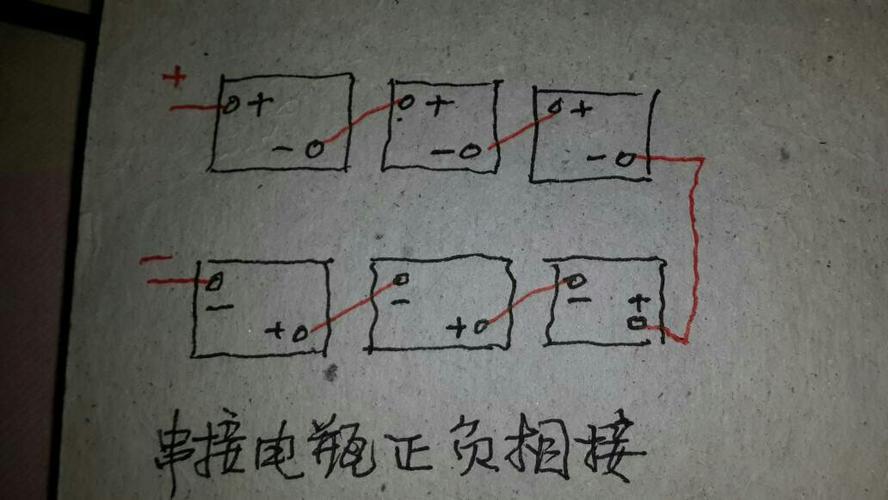 +
+ + +
- - -
-
- - -
+ + +
串接电瓶正负相接